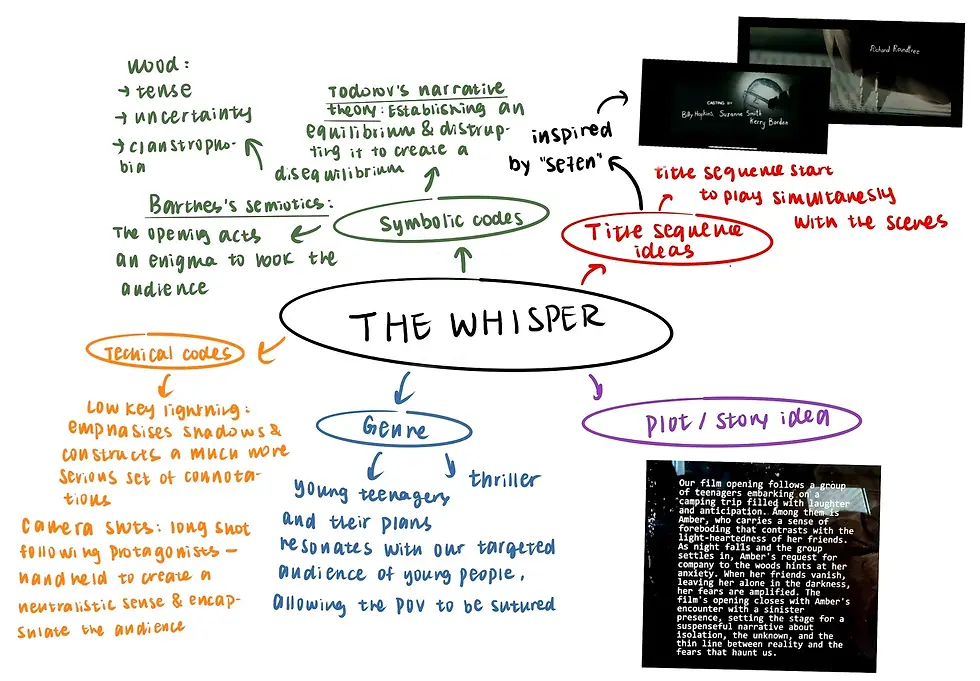 THE WHISPER
Symbolic codes
Todorov's narrative
theory: Establishing an
equilibrium & distrup-
ting it to create a
disequilibrium
Barthes's semiotics:
The opening acts
an enigma to hook the
audience
Mood:
→ tense
→ uncertainty
→ claustropho-
bia
Title sequence
ideas
inspired
by "Se7en"
CASTING BY
Billy Hopkins, Suzanne Smith
Kerry Borden
Richard Roundtree
title sequence start
to play simultanesly
with the scenes
Techical codes
Low key lightning:
emphasises shadows &
constructs a much more
serious set of connota-
tions
Camera shots: long shot
following protagonists –
handheld to create a
neutralistic sense & encap-
sulate the audience
Genre
young teenagers
and their plans
resonates with our targeted
audience of young people,
allowing the POV to be sutured
thriller
Plot / Story idea
Our film opening follows a group
of teenagers embarking on a
camping trip filled with laughter
and anticipation. Among them is
Amber, who carries a sense of
foreboding that contrasts with the
light-heartedness of her friends.
As night falls and the group
settles in, Amber's request for
company to the woods hints at her
anxiety. When her friends vanish,
leaving her alone in the darkness,
her fears are amplified. The
film's opening closes with Amber's
encounter with a sinister
presence, setting the stage for a
suspenseful narrative about
isolation, the unknown, and the
thin line between reality and the
fears that haunt us.